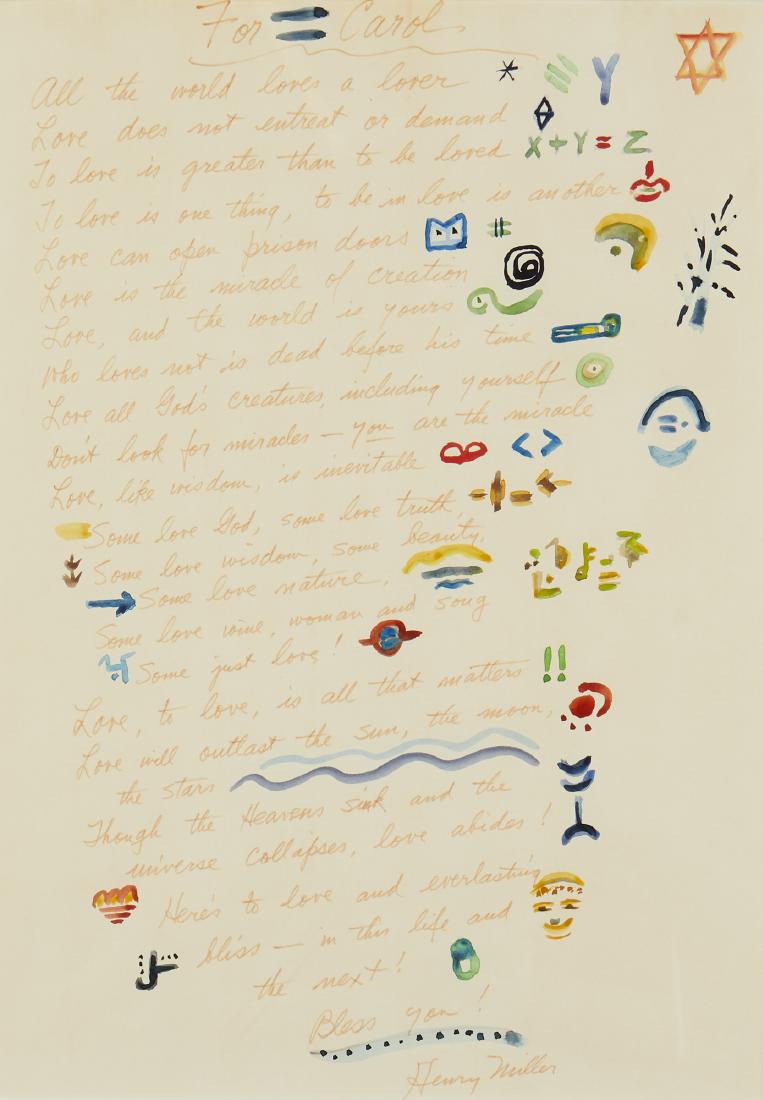 For = Carol
All the world loves a lover
Love does not entreat or demand
To love is greater than to be loved X + Y = Z
To love is one thing, to be in love is another
Love can open prison doors
Love is the miracle of creation
Love, and the world is yours
Who loves not is dead before his time
Love all God's creatures, including yourself
Don't look for miracles — you are the miracle
Love, like wisdom, is inevitable
Some love God, some love truth,
Some love wisdom, some beauty,
Some love nature,
Some love wine, woman and song
Some just love!
Love, to love, is all that matters !!
Love will outlast the sun, the moon,
the stars
Though the Heavens sink and the
universe collapses, love abides!
Here's to love and everlasting
bliss — in this life and
the next!
Bless you!
Henry Miller